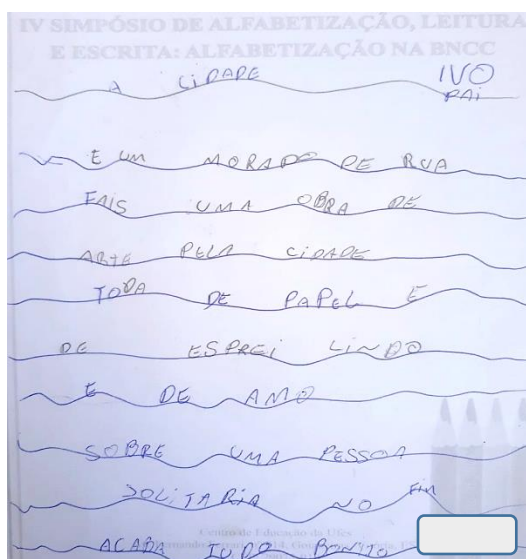 IV SIMPÓSIO DE ALFABETIZAÇÃO, LEITURA
E ESCRITA: ALFABETIZAÇÃO NA BNCC
A CIDADE IVO
PAI
E UM MORADO DE RUA
FAIS UMA OBRA DE
ARTE PELA CIDADE
TODA DE PAPEL E
DE ESPREI LINDO
E DE AMO
SOBRE UMA PESSOA
SOLITARIA NO FIM
Centro de Educação da Ufes
ACABA TUDO BONTO